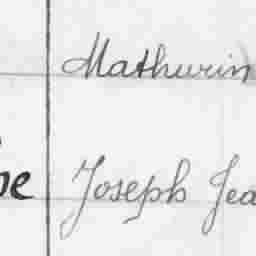 Mathurin
pe Joseph Jea